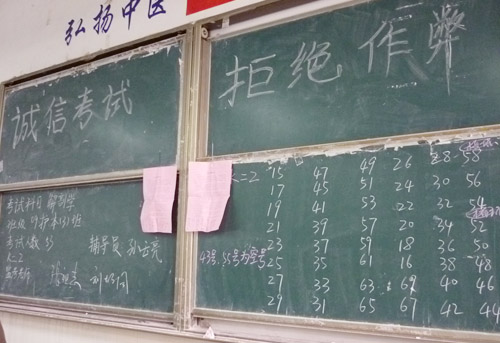 弘扬中医
诚信考试
拒绝作弊
考试科目 解剖学
班级 09护本(3)班
考试人数 53
辅导员
K=2
43号,55号为空号
K=2
15 47 49 26 28 58
17 45 51 24 30 56
19 41 53 22 32 54
21 39 57 20 34 52
23 37 59 18 36 50
25 35 61 16 38 48
27 33 63 69 40 46
29 31 65 67 42 44